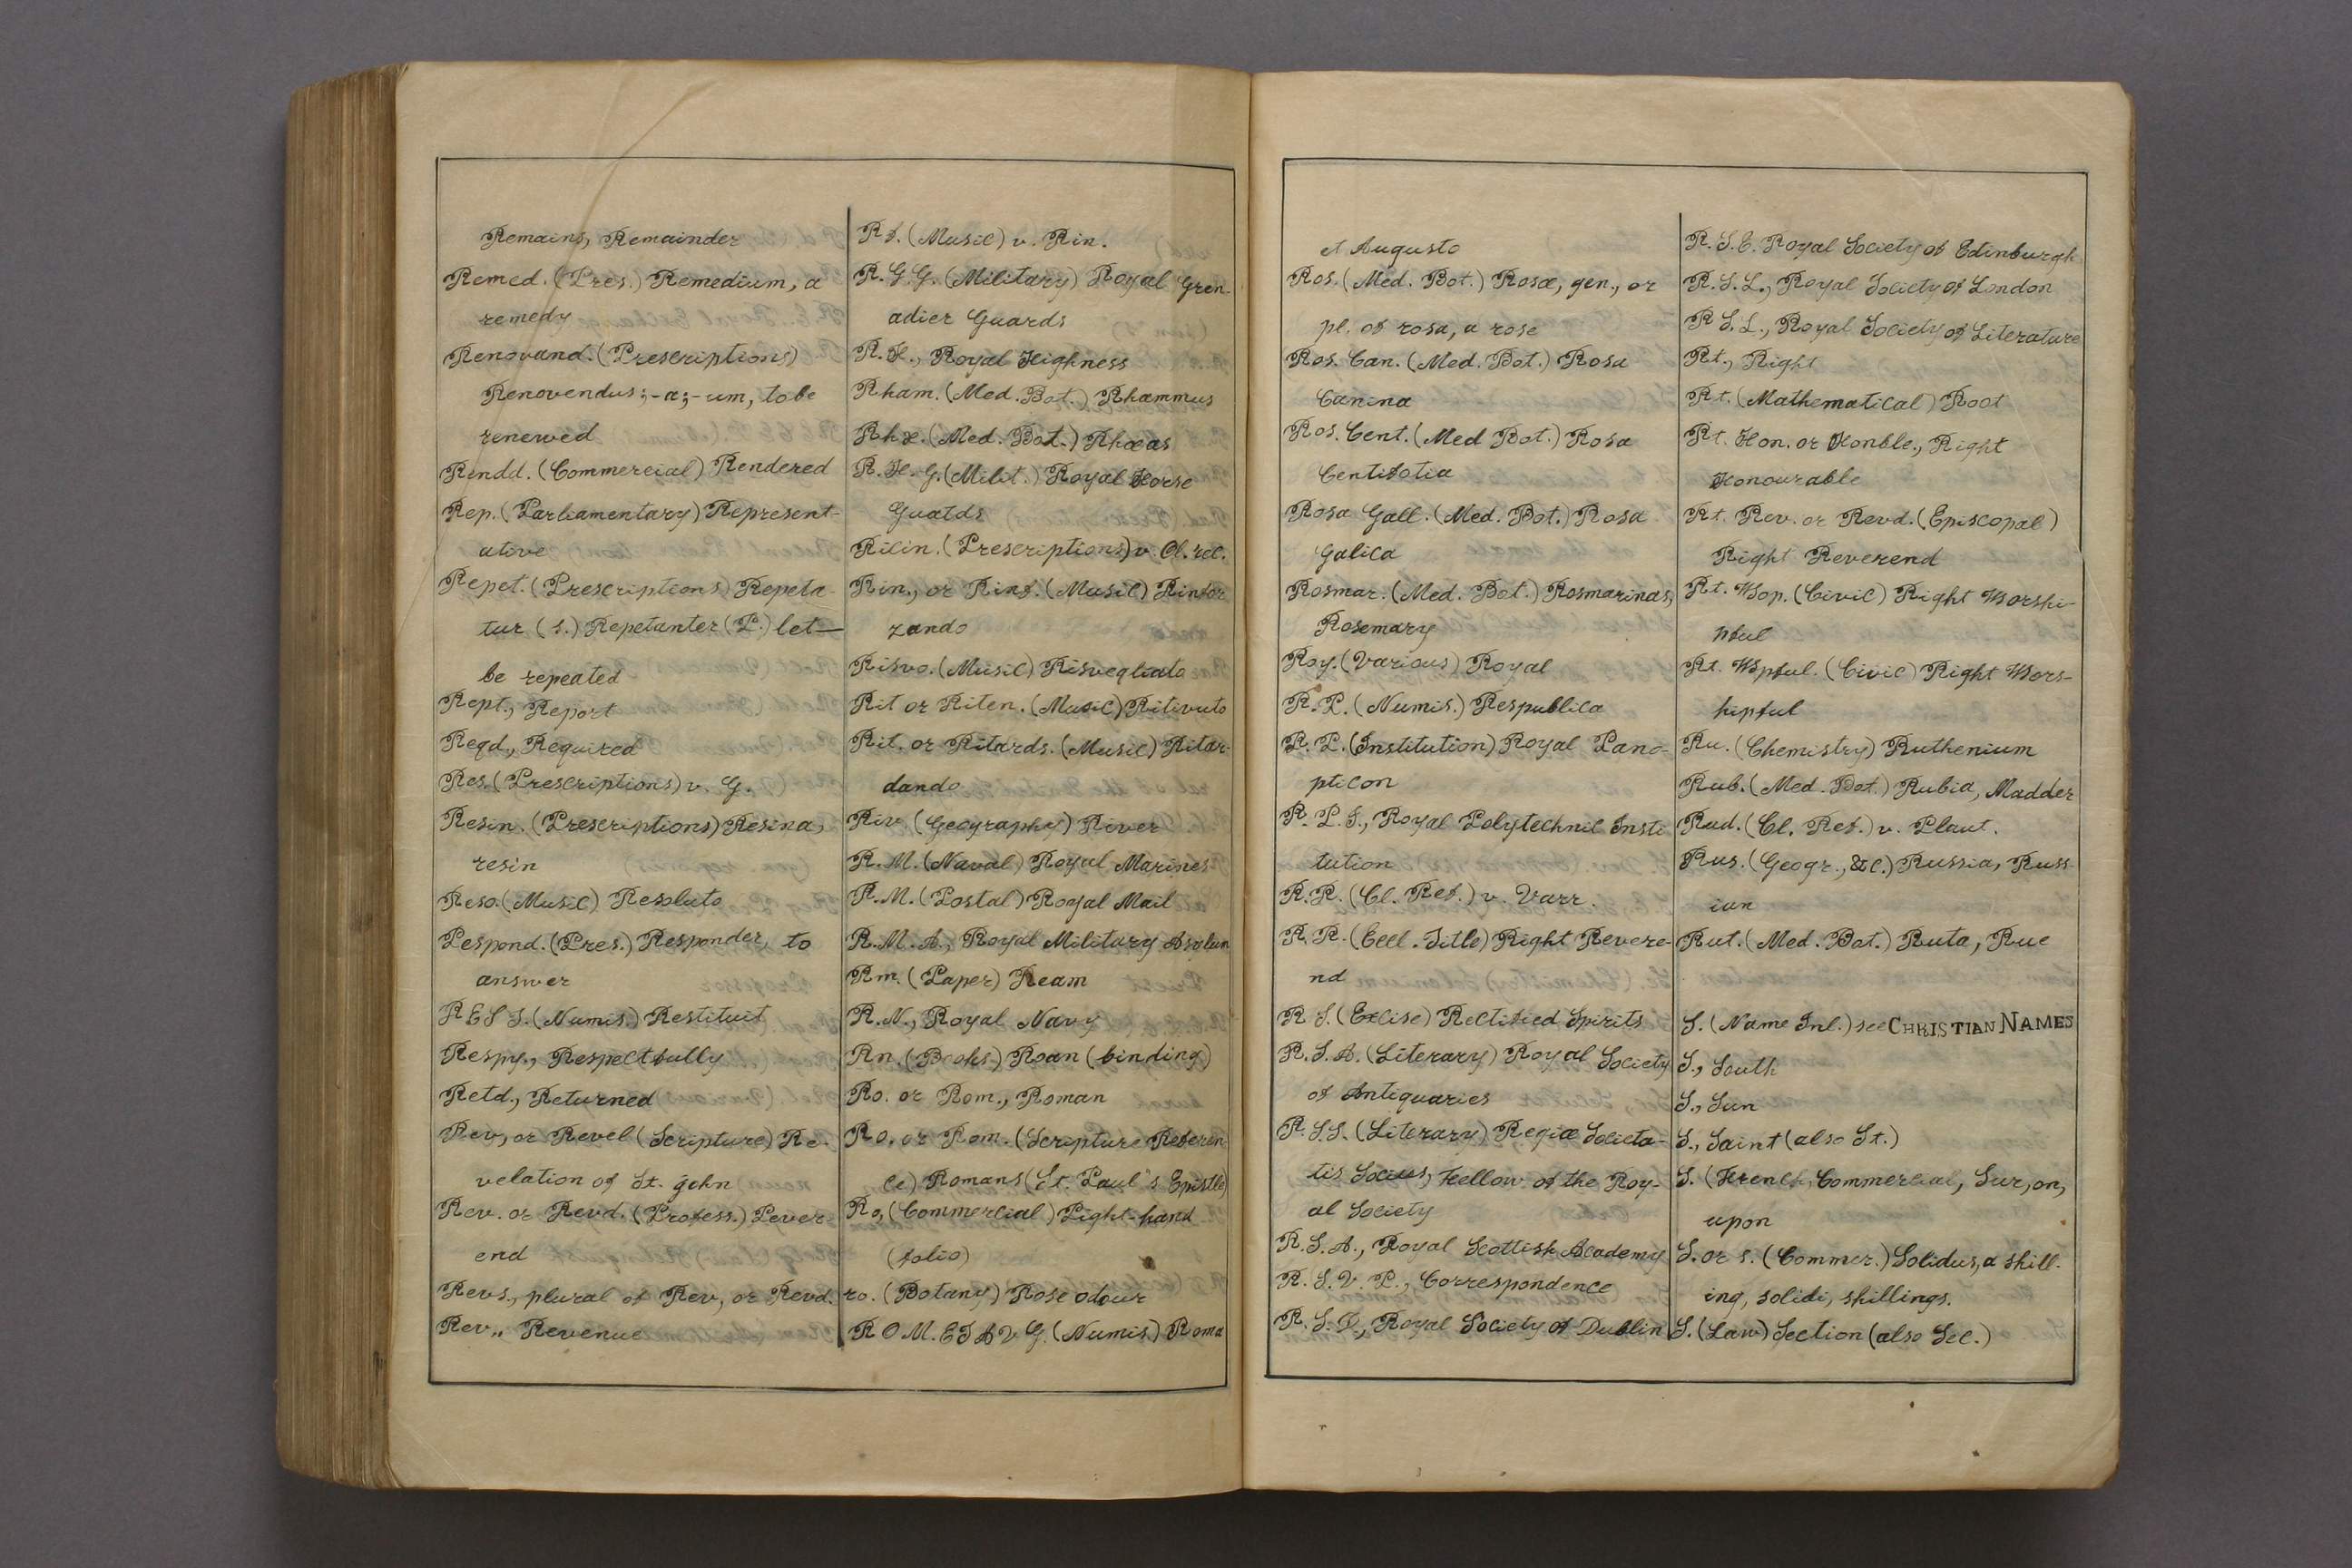 Remains, Remainder
Remed. (Pres.) Remedium, a
remedy
Renovand. (Prescriptions)
Renovendus; -a; -um, to be
renewed
Rendd. (Commercial) Rendered
Rep. (Parliamentary) Represent-
ative
Repet. (Prescriptions) Repeta-
tur (S.) Repetanter (P.) let—
be repeated
Rept., Report
Reqd., Required
Res. (Prescriptions) v. G.
Resin. (Prescriptions) Resina,
resin
Reso. (Music) Resoluto
Pespond. (Pres.) Responder, to
answer
REST. (Numis.) Restituit
Respy., Respectfully
Retd., Returned
Rev, or Revel (Scripture) Re-
velation of St. john
Rev. or Revd. (Profess.) Pever-
end
Revs., plural of Rev, or Revd.
Rev,. Revenue
Rf. (Music) v. Rin.
R. G. G. (Military) Royal Gren-
adier Guards
R. H., Royal Highness
Rham. (Med. Bot.) Rhammus
Rhæ. (Med. Bot.) Rhæas
R. H. G. (Milit.) Royal Horse
Guatds
Ricin. (Prescriptions) v. Ol. ric.
Rin., or Rinf. (Music) Rinfor
zando
Risvo. (Music) Risvegliato
Rit or Riten. (Music) Ritivuto
Rit. or Ritards. (Music) Ritar-
dando
Riv. (Geography) River
R. M. (Naval) Royal Marines
R. M. (Postal) Royal Mail
R. M. A., Royal Military Asylum
Rm. (Paper) Ream
R. N., Royal Navy
Rn. (Books) Roan (binding)
Ro. or Rom., Roman
Ro, or Rom. (Scripture Referen
ce) Romans (St. Paul's Epistle)
Ro, (Commercial) Pight-hand
(folio)
ro. (Botany) Rose odour
R O M. ET AV G. (Numis.) Roma
et Augusto
Ros. (Med. Bot.) Rosæ, gen., or
pl. of rosa, a rose
Ros. Can. (Med. Bot.) Rosa
Canina
Ros. Cent. (Med Bot.) Rosa
Centifotia
Rosa Gall. (Med. Bot.) Rosa
Galica
Rosmar. (Med. Bot.) Rosmarinas,
Rosemary
Roy. (Various) Royal
R. P. (Numis.) Respublica
R. P. (Institution) Royal Pano-
pticon
R. P. I., Royal Polytechnic Insti
tution
R. R. (Cl. Ref.) v. Varr.
R. R. (Eccl. Title) Right Revere-
nd
R S. (Excise) Rectified Spirits
R. S. A. (Literary) Royal Society
of Antiquaries
R. S.S. (Literary) Regiæ Societa-
tis Socius, Fellow of the Roy-
al Society
R. S. A., Royal Scottish Academy
R. S. V. P., Correspondence
R. S. D., Royal Society of Dublin
R. S. E. Royal Society of Edinburgh
R. S. L., Royal Society of London
R S. L., Royal Society of Literature
Rt., Right
Rt. (Mathematical) Root
Rt. Hon. or Honble., Right
Honourable
Rt. Rev. or Revd. (Episcopal)
Right Reverend
Rt. Wop. (Civic) Right Worshi-
pful
Rt. Wpful. (Civic) Right Wors-
hipful
Ru. (Chemistry) Ruthenium
Rub. (Med. Bot.) Rubia, Madder
Rud. (Cl. Ref.) v. Plaut.
Rus. (Geogr., &c.) Russia, Russ-
ian
Rut. (Med. Bot.) Ruta, Rue
S. (Name Inl.) see CHRISTIAN NAMES
S., South
S., Sun
S., Saint (also St.)
S. (French, Commercial, Sur, on,
upon
S. or s. (Commer.) Solidus, a shill-
ing, solidi, shillings.
S. (Law) Section (also Sec.)